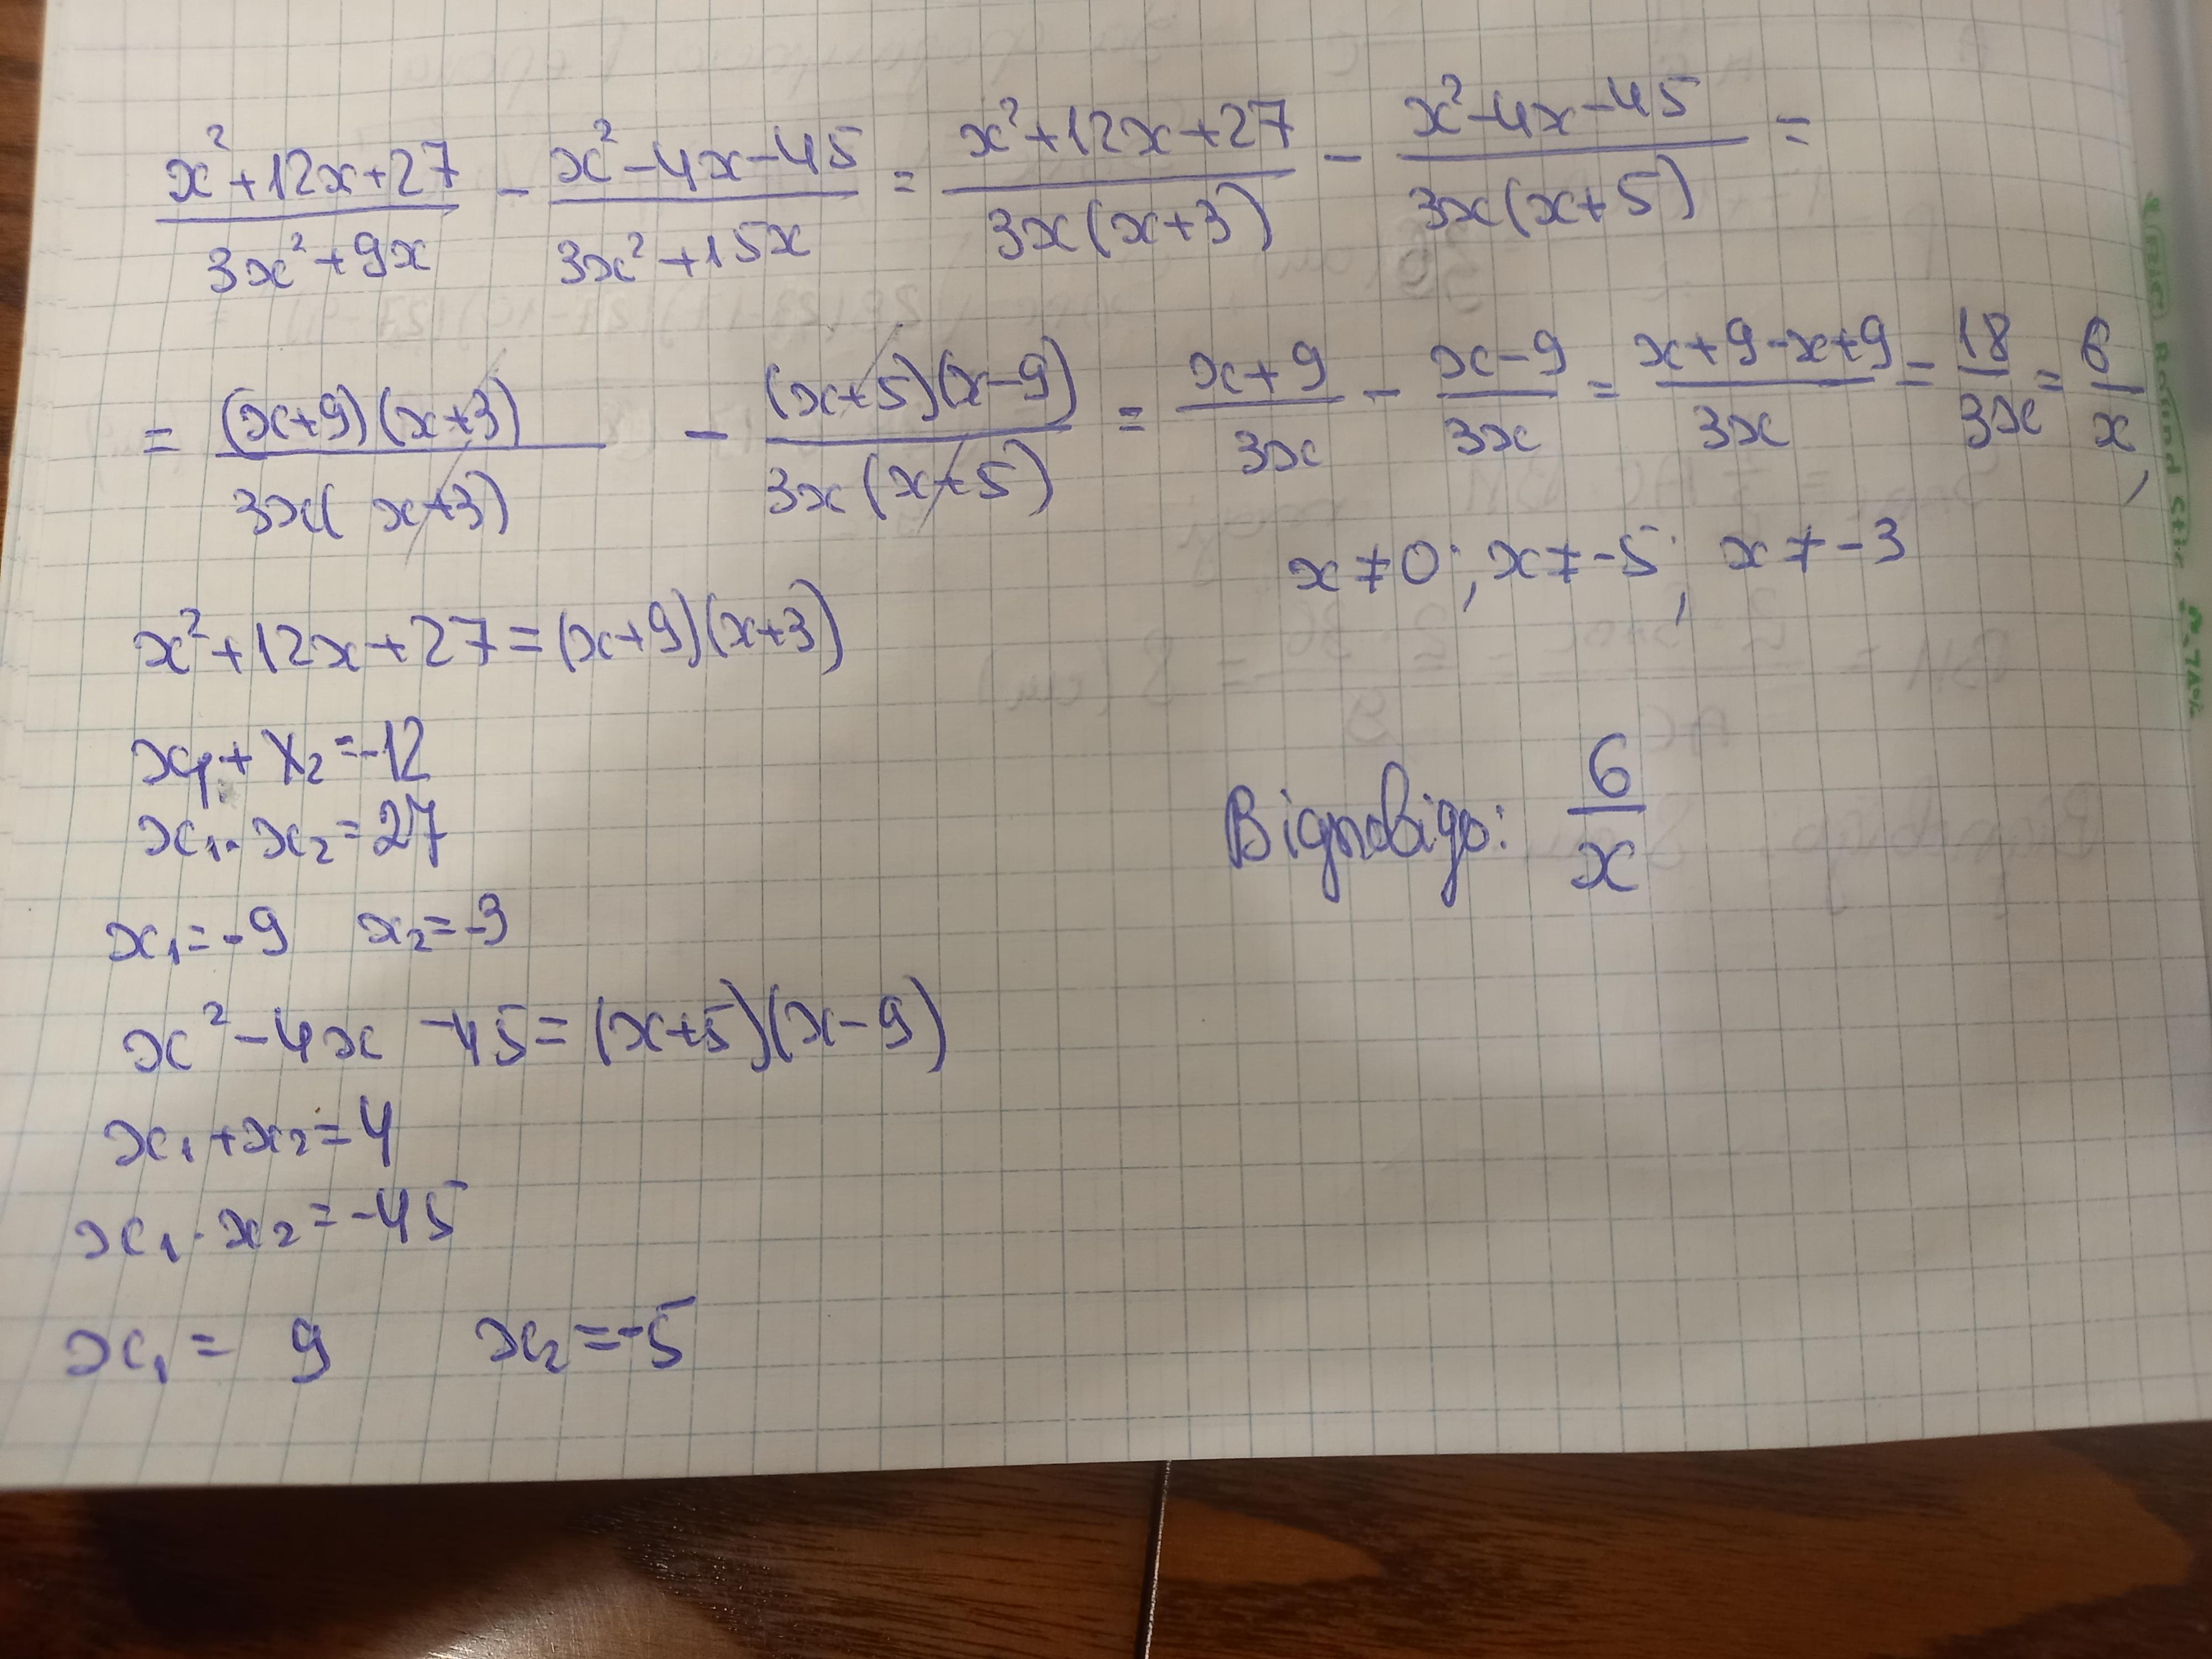 x²+12x+27/3x²+9x - x²-4x-45/3x²+15x = x²+12x+27/3x(x+3) - x²-4x-45/3x(x+5) =
= (x+9)(x+3)/3x(x+3) - (x+5)(x-9)/3x(x+5) = x+9/3x - x-9/3x = x+9-x+9/3x = 18/3x = 6/x,
x≠0; x≠-5; x≠-3
x²+12x+27=(x+9)(x+3)
x₁+x₂=-12
x₁·x₂=27
x₁=-9 x₂=-3
Відповідь: 6/x
x²-4x-45=(x+5)(x-9)
x₁+x₂=4
x₁·x₂=-45
x₁=9 x₂=-5